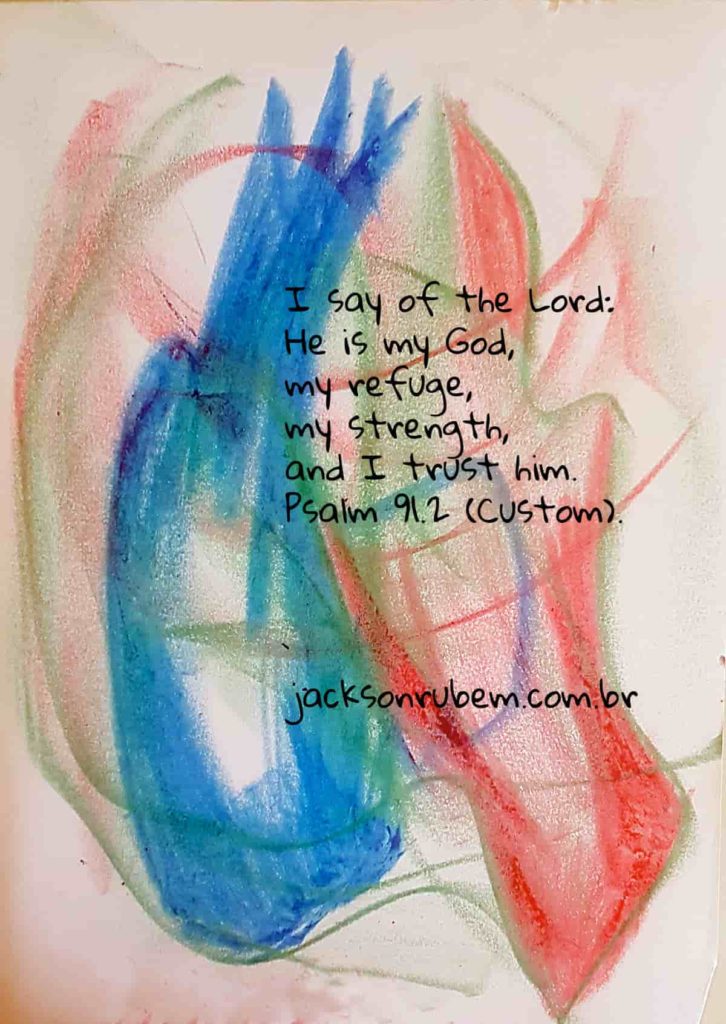 I say of the Lord:
He is my God,
my refuge,
my strength,
and I trust him.
Psalm 91.2 (Custom).
jacksonrubem.com.br